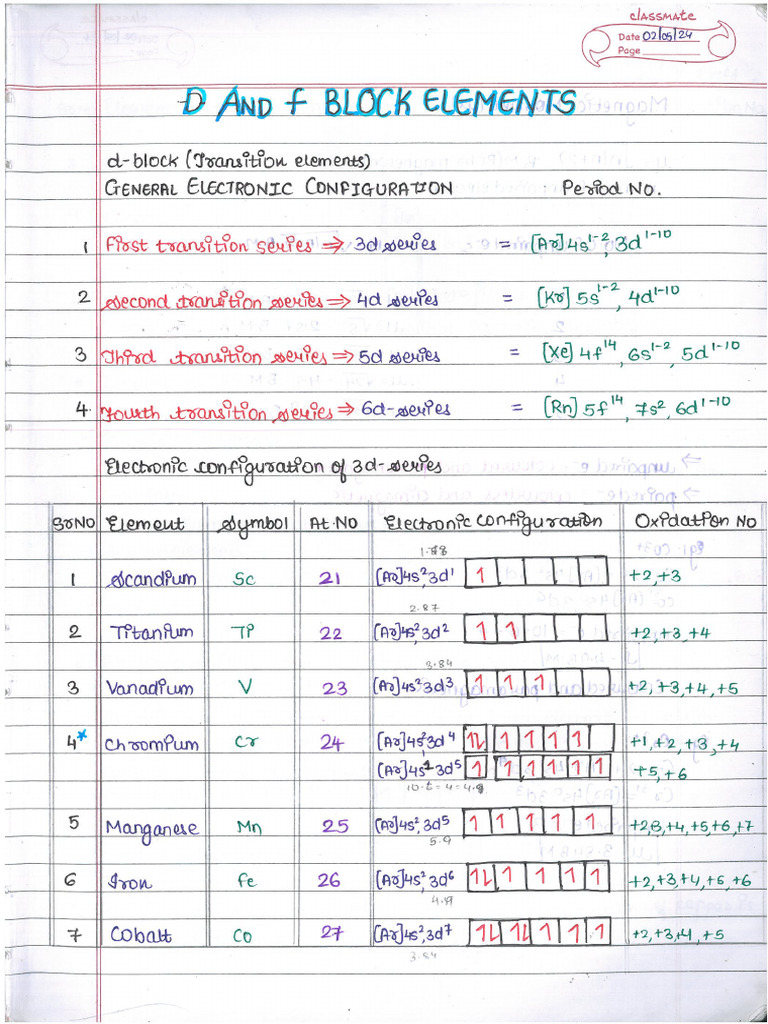 classmate
Date 02/05/24
Page
D AND f BLOCK ELEMENTS
d-block (Transition elements)
GENERAL ELECTRONIC CONFIGURATION Period No.
1 First transition series ⇒ 3d series = [Ar] 4s¹⁻², 3d¹⁻¹⁰
2 Second transition series ⇒ 4d series = [Kr] 5s¹⁻², 4d¹⁻¹⁰
3 Third transition series ⇒ 5d series = [Xe] 4f¹⁴, 6s¹⁻², 5d¹⁻¹⁰
4. Fourth transition series ⇒ 6d-series = [Rn] 5f¹⁴, 7s², 6d¹⁻¹⁰
Electronic configuration of 3d-series
Sr No Element Symbol At. No Electronic Configuration Oxidation No
1.73
1 Scandium Sc 21 [Ar] 4s², 3d¹ 1 +2, +3
2.87
2 Titanium Ti 22 [Ar] 4s², 3d² 1 1 +2, +3, +4
3.84
3 Vanadium V 23 [Ar] 4s², 3d³ 1 1 1 +2, +3, +4, +5
4* Chromium Cr 24 [Ar] 4s², 3d⁴ 1L 1 1 1 1 +1, +2, +3, +4
[Ar] 4s¹ 3d⁵ 1 1 1 1 1 1 +5, +6
5 Manganese Mn 25 [Ar] 4s², 3d⁵ 1 1 1 1 1 +2,3, +4, +5, +6, +7
5.9
6 Iron Fe 26 [Ar] 4s², 3d⁶ 1L 1 1 1 1 +2, +3, +4, +5, +6
4.9
7 Cobalt Co 27 [Ar] 4s², 3d⁷ 1L 1L 1 1 1 +2, +3, +4, +5
3.84